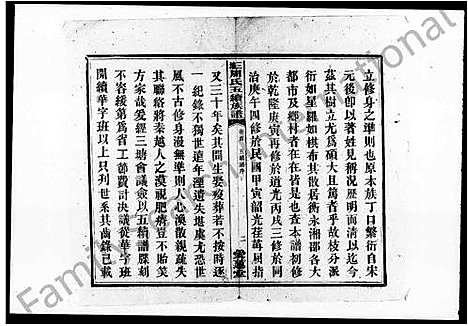 立修身之準則也原本族丁口繁衍自宋
元後卽以著姓見稱況歷明而清以迄今
茲其樹立尤爲碩大且篤者乎故枝分派
衍如星羅如棋布其散居衡永湘邵各大
都市及鄉村者在在皆是也查本譜初修
於乾隆庚寅再修於道光丙戌三修於同
治庚午四修於民國甲寅韶光荏苒屈指
關氏五續族譜
又三十年矣其間生娶歿葬若不按時逐
一紀錄不獨世遠年湮遺失堪虞尤恐世
風不古修身漫無準則人心渙散親疏失
其聯絡將秦越人之漠視肥瘠豈不貽笑
方家哉爰經三塘會議僉以五續譜牒刻
不容緩第爲省工節費計決議從華字班
開續華字班以上只列世系其齒錄已載
Family International